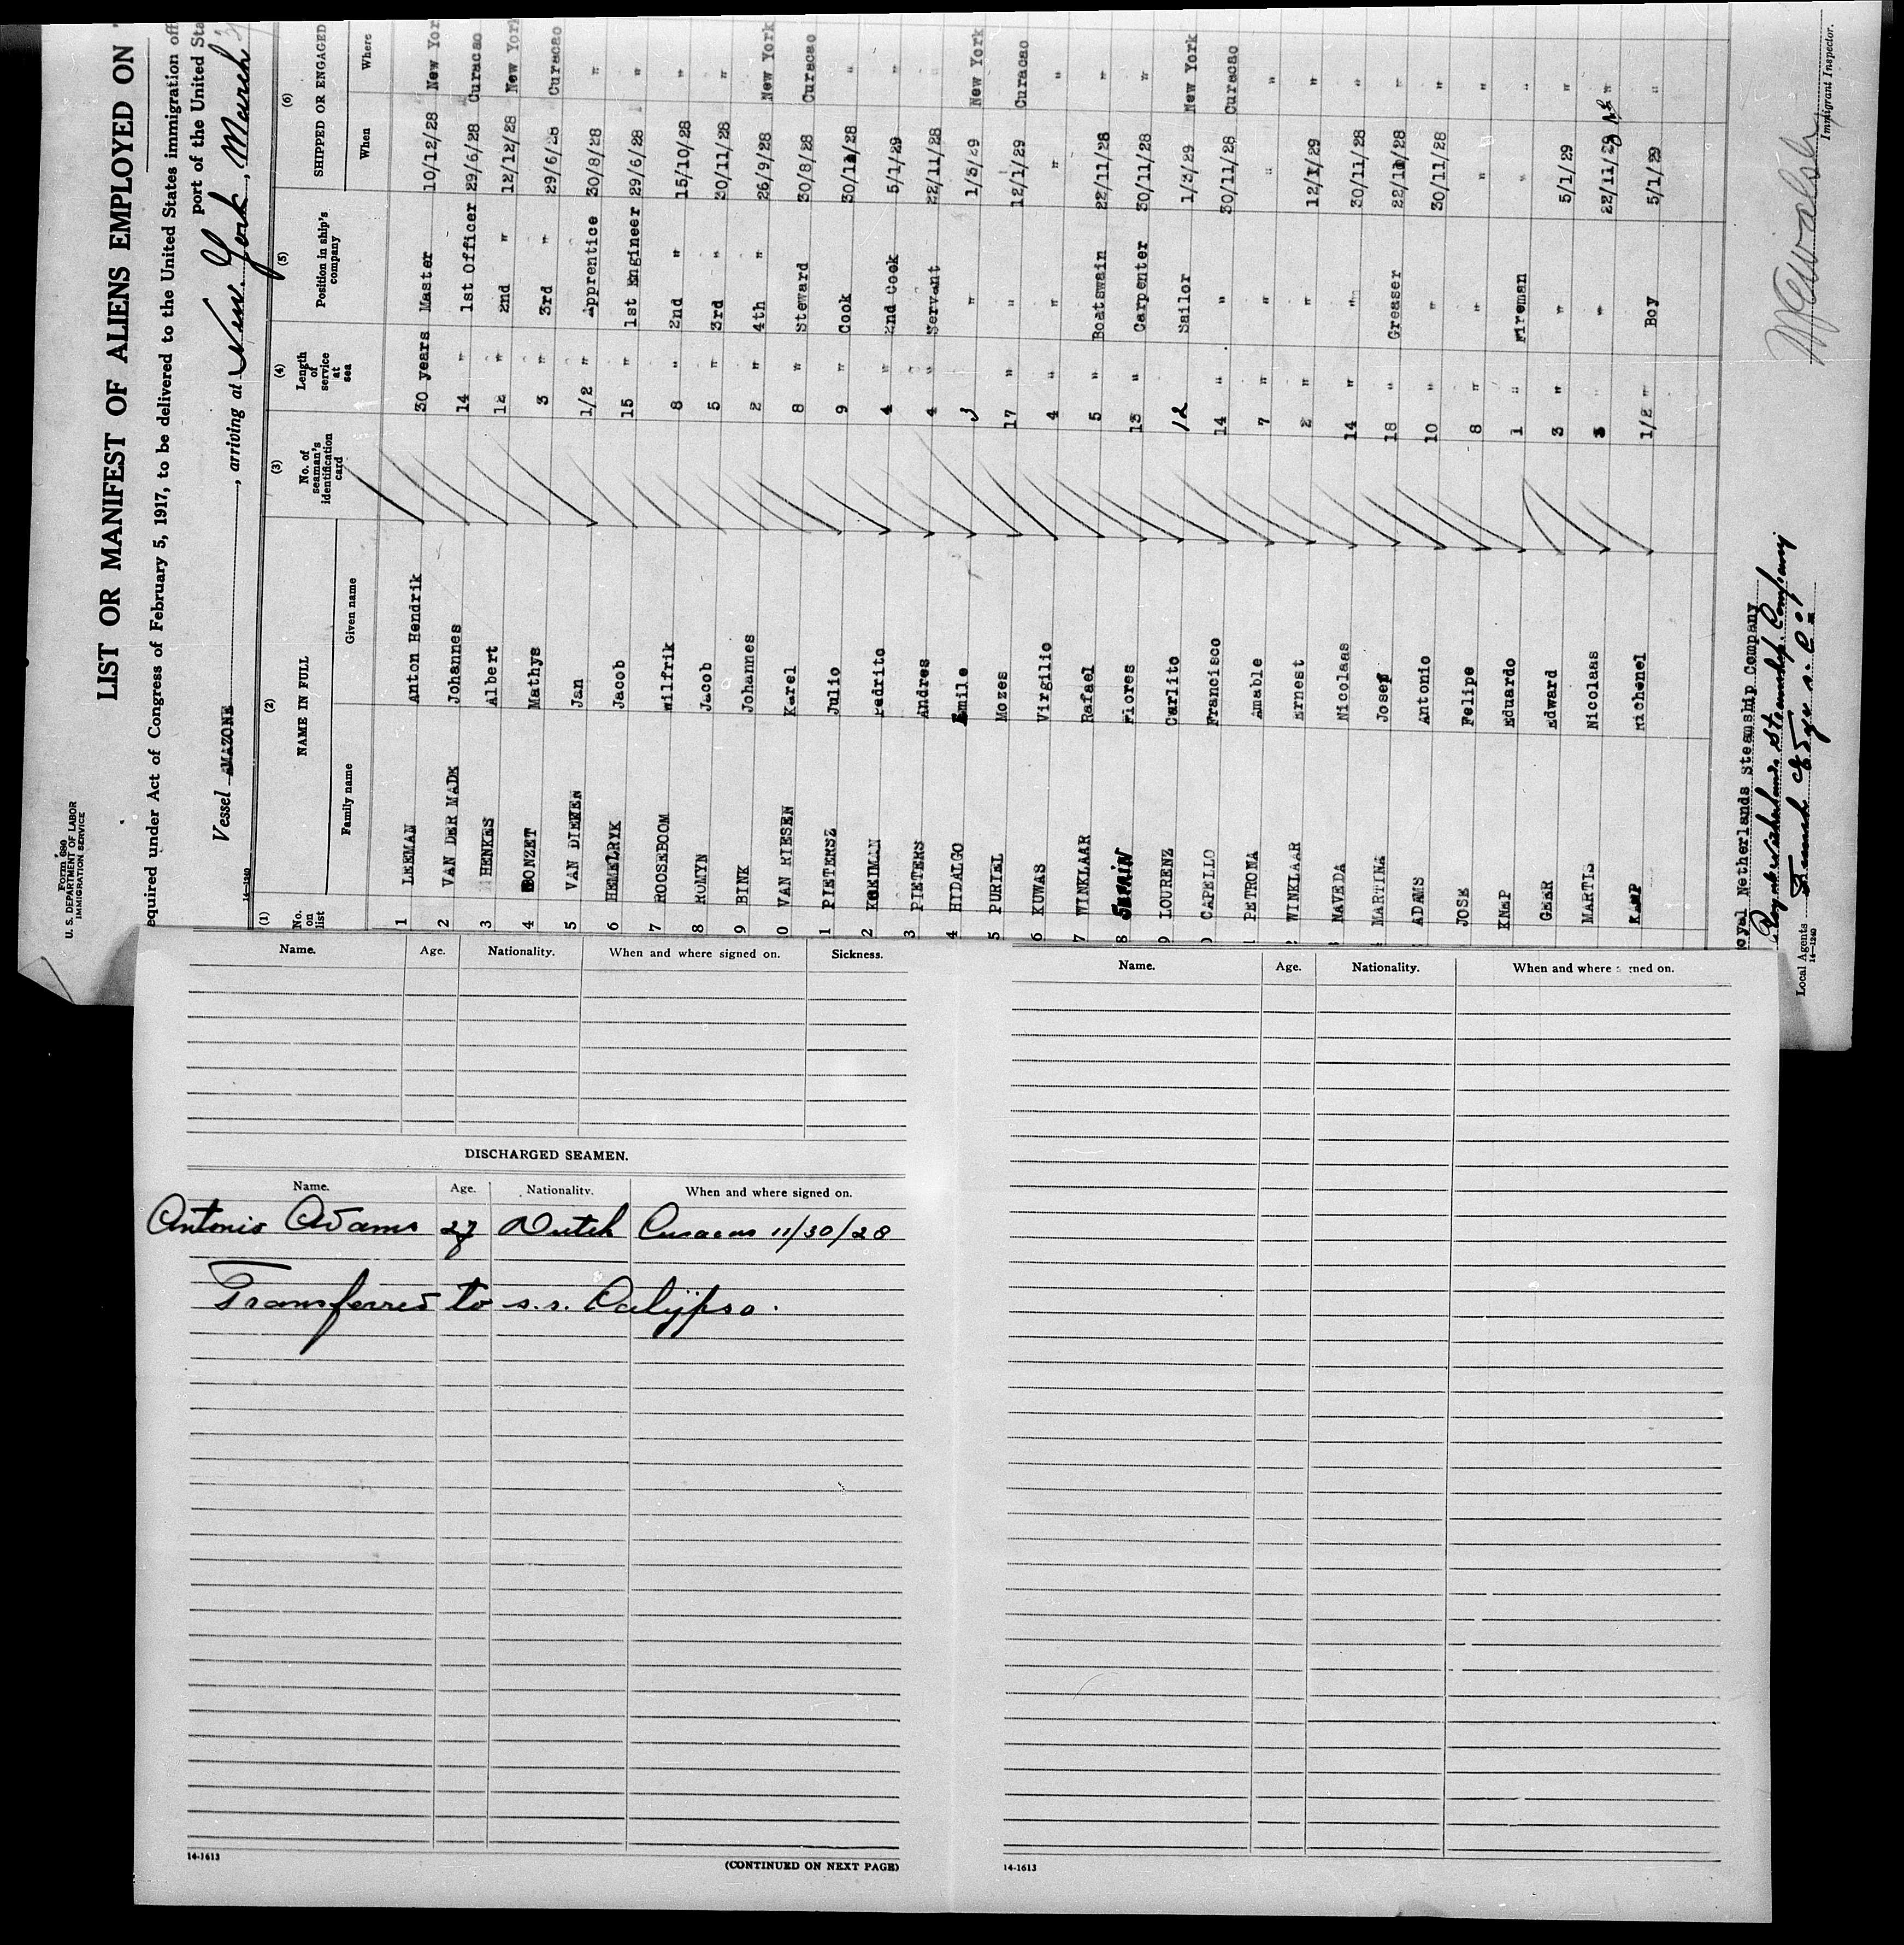 Form 680
U. S. DEPARTMENT OF LABOR
IMMIGRATION SERVICE
LIST OR MANIFEST OF ALIENS EMPLOYED ON
equired under Act of Congress of February 5, 1917, to be delivered to the United States immigration off
port of the United Sta
Vessel AMAZONE, arriving at New York, March
14-1240
(1) (2) (3) (4) (5) (6)
No. on list NAME IN FULL No. of seaman's identification card Length of service at sea Position in ship's company SHIPPED OR ENGAGED
Family name Given name When Where
1 LEEMAN Anton Hendrik 30 years Master 10/12/28 New Yor
2 VAN DER MADE Johannes 14 " 1st Officer 29/6/28 Curacao
3 HENKES Albert 12 " 2nd " 12/12/28 New York
4 BONZET Mathys 3 " 3rd " 29/6/28 Curacao
5 VAN DIEMEN Jan 1/2 " Apprentice 30/8/28 "
6 HEMELRYK Jacob 15 " 1st Engineer 29/6/28 "
7 ROOSEBOOM Wilfrik 8 " 2nd " 15/10/28 "
8 ROMYN Jacob 5 " 3rd " 30/11/28 "
9 BINK Johannes 2 " 4th " 26/9/28 New York
0 VAN RIESEN Karel 8 " Steward 30/8/28 Curacao
1 PIETERSZ Julio 9 " Cook 30/11/28 "
2 Pedrito 4 " 2nd Cook 5/1/29 "
3 PIETERS Andres 4 " Servant 22/11/28
4 HIDALGO Emile 3 " 1/3/29 New York
5 PURIEL Mozes 17 " " 12/1/29 Curacao
6 KUWAS Virgilio 4 " " " "
7 WINKLAAR Rafael 5 " Boatswain 22/11/28 "
8 Flores 13 " Carpenter 30/11/28 "
9 LOURENZ Carlito 12 Sailor 1/3/29 New York
CAPELLO Francisco 14 " " 30/11/28 Curacao
PETRONA Amable 7 " " " "
WINKLAAR Ernest 2 " " 12/1/29 "
NAVEDA Nicolaas 14 " " 30/11/28 "
MARTINA Josef 18 " Greaser 22/11/28 "
ADAMS Antonio 10 " " 30/11/28 "
JOSE Felipe 8 " " " "
KNAP Eduardo 1 " Fireman " "
GEER Edward 3 " " 5/1/29 "
MARTIS Nicolaas 3 " " 22/11/28 "
KAMP Richenel 1/2 " Boy 5/1/29 "
oyal Netherlands Steamship Company
Royal Netherlands Steamship Company
Local Agents
14-1240
Immigrant Inspector.
Name. Age. Nationality. When and where signed on. Sickness.
DISCHARGED SEAMEN.
Name. Age. Nationality. When and where signed on.
Antonio Adams 27 Dutch Curacao 11/30/28
Transferred to s.s. Calypso.
14-1613
(CONTINUED ON NEXT PAGE)
Name. Age. Nationality. When and where signed on.
14-1613